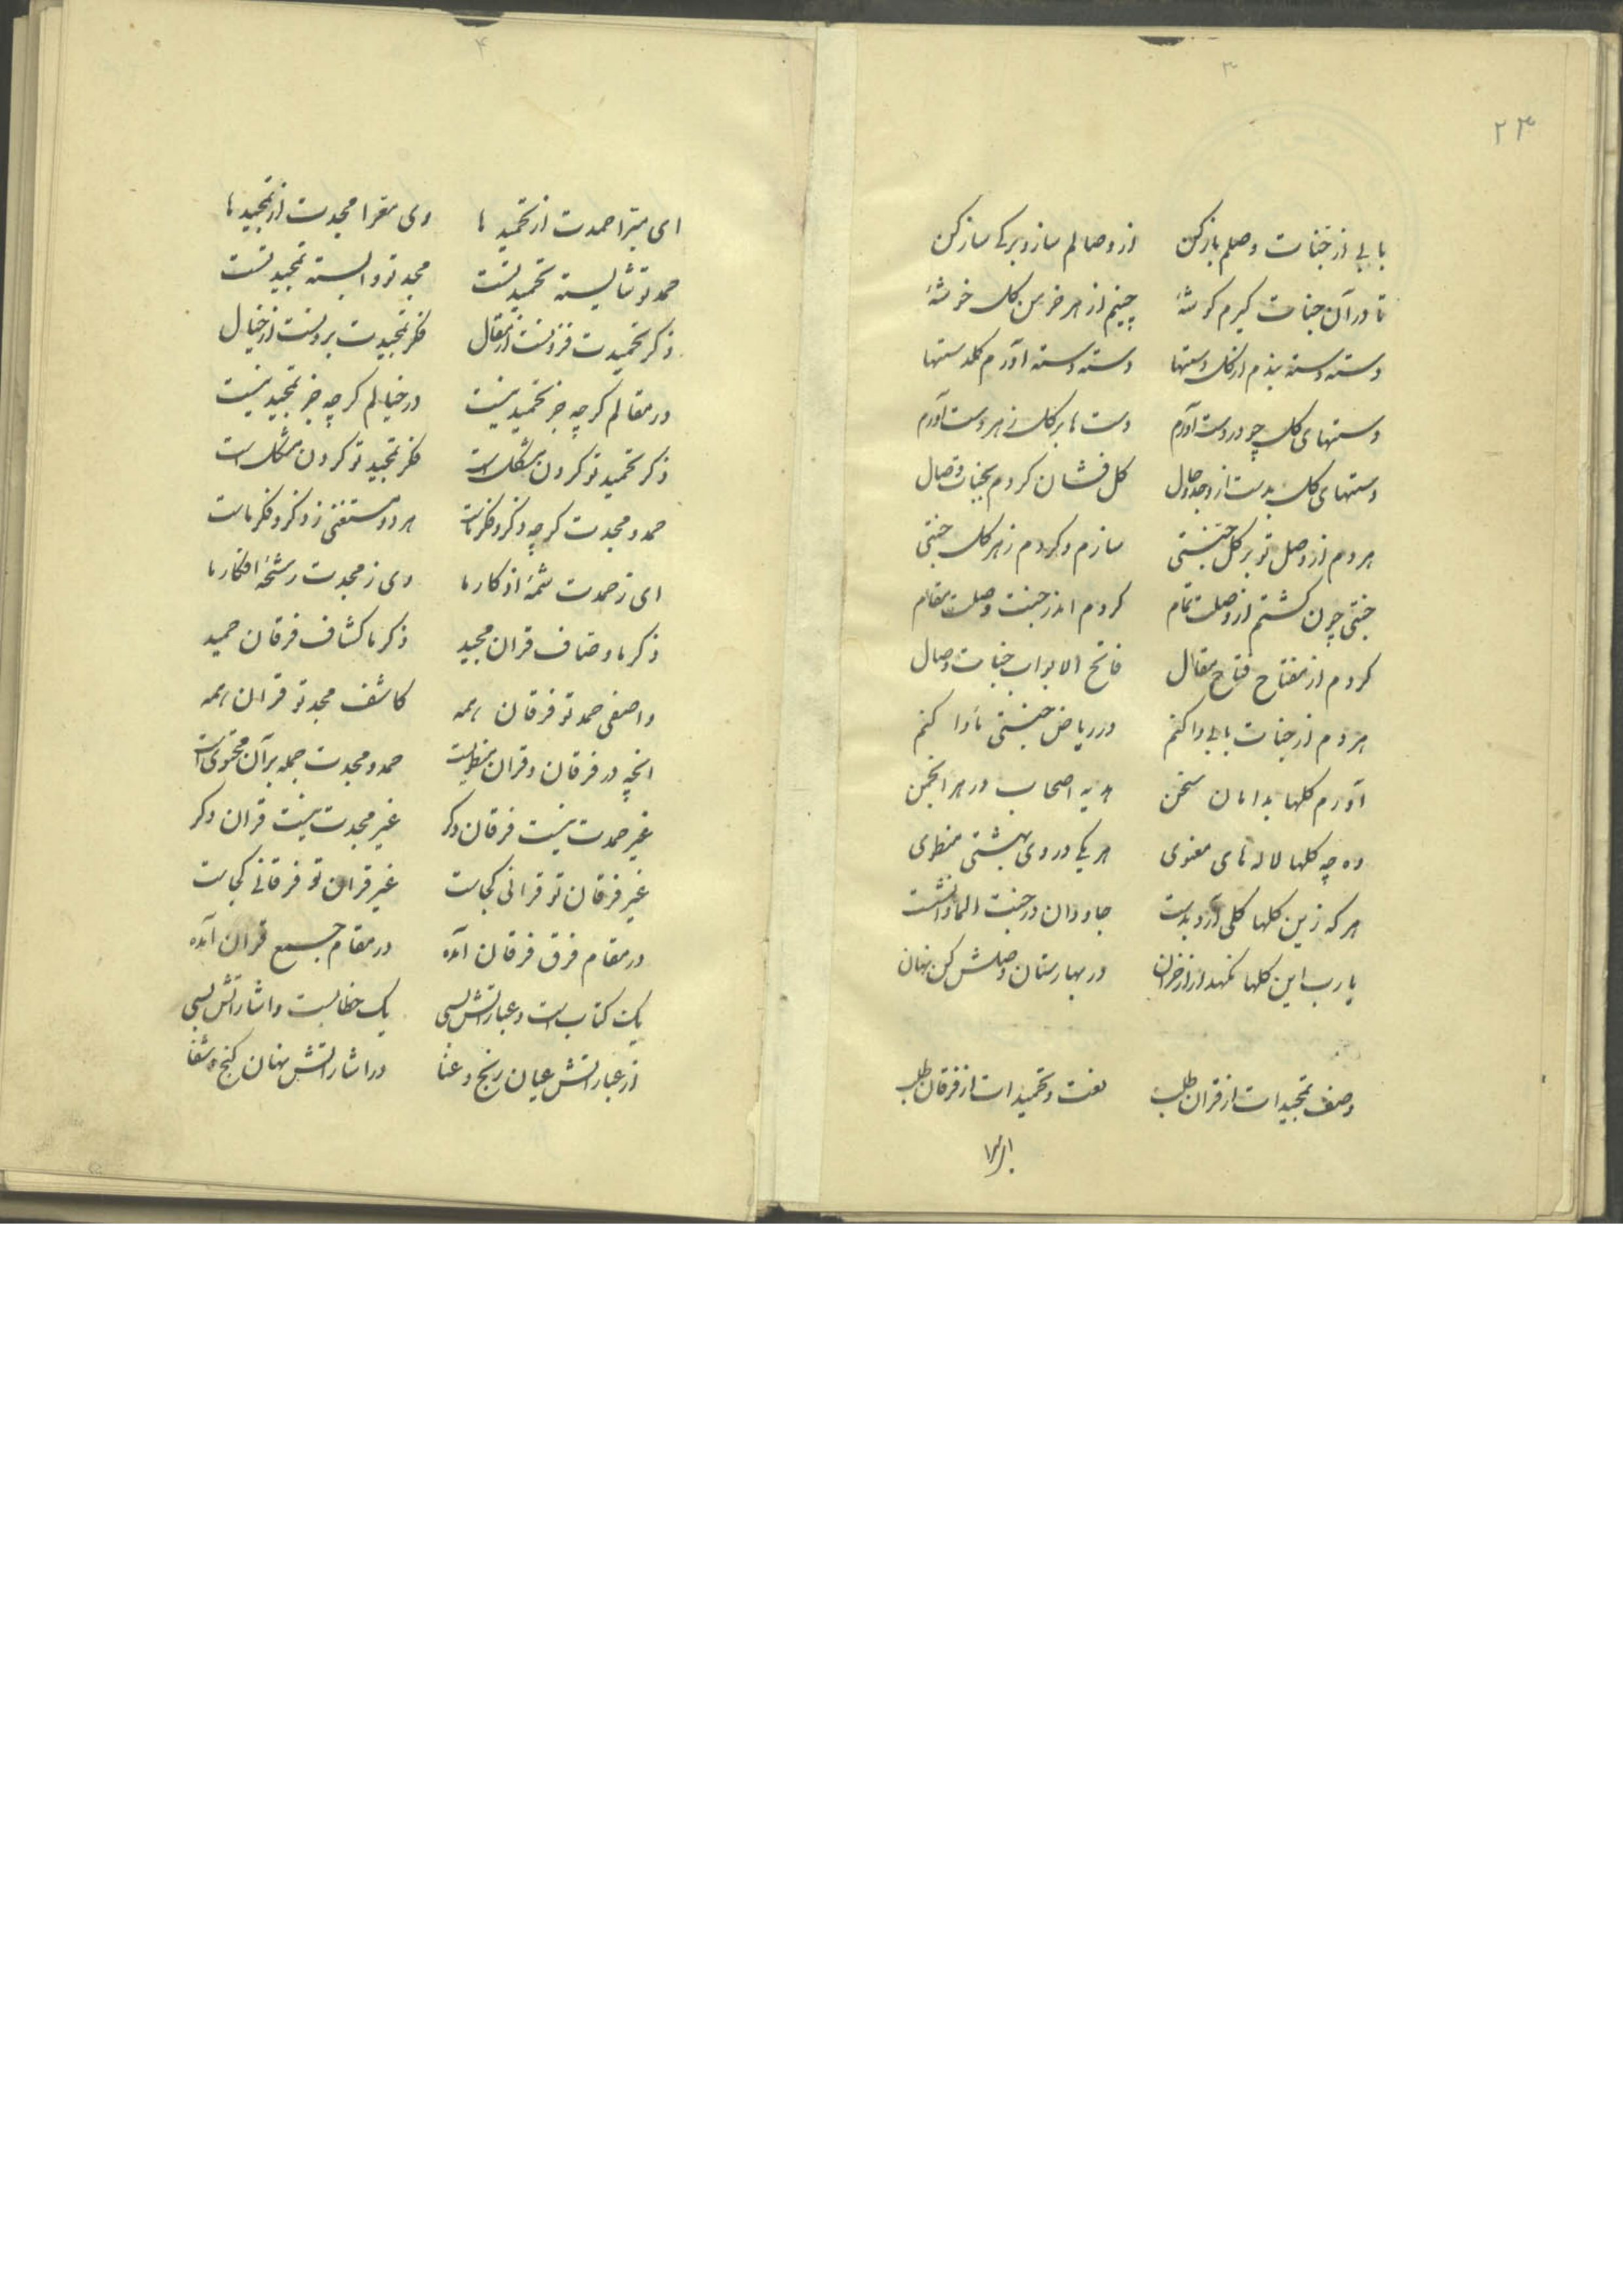 ۳
۲۳
بابی از جنات وصلم باز کن از وصالم ساز و برکی ساز کن
تا در آن جنات کیرم کوشهٔ چینم از هر خرمن کل خوشهٔ
دسته دسته بندم از کل دستها دسته دسته آورم کلدستها
دستهای کل چو در دست آورم دست ها بر کل ز هر دست آورم
دستهای کل بدست از وجد و حال کل فشان کردم بجنات وصال
هر دم از وصل تو بر کل جنتی سازم و کردم ز هر کل جنتی
جنتی چون کشتم از وصلت تمام کردم اندر جنت وصلت مقام
کردم از مفتاح فتاح مقال فاتح الابواب جنات وصال
هر دم از جنات بابی وا کنم در ریاض جنتی ماوا کنم
آورم کلها بدامان سخن هدیه اصحاب در هر انجمن
وه چه کلها لاله های معنوی هر یکی در وی بهشتی منطوی
هر که زین کلها کلی آرد بدست جاودان در جنت الماوا نشست
یا رب این کلها نکهدار از خزان در بهارستان وصلش کن نهان
وصف تمجیدات از قران طلب نعت و تحمیدات از فرقان طلب
۴
ای مبرا حمدت از تحمید ها وی معرا مجدت از تمجید ها
حمد تو شایسته تحمید تست مجد تو وابسته تمجید تست
ذکر تحمیدت فزونست از مقال فکر تمجیدت برونست از خیال
در مقالم کر چه جز تحمید نیست در خیالم کر چه جز تمجید نیست
ذکر تحمید تو کردن مشکل است فکر تمجید تو کردن مشکل است
حمد و مجدت کر چه ذکر و فکر ماست هر دو مستغنی ز ذکر و فکر ماست
ای ز حمدت شمهٔ اذکار ما وی ز مجدت رشحهٔ افکار ما
ذکر ما وصاف قران مجید ذکر ما کشاف فرقان حمید
واصفی حمد تو فرقان همه کاشف مجد تو قران همه
انچه در فرقان و قران منطویست حمد و مجدت جمله بر آن محتوی است
غیر حمدت نیست فرقان دکر غیر مجدت نیست قران دکر
غیر فرقان تو قرانی کجاست غیر قران تو فرقانی کجاست
در مقام فرق فرقان آمده در مقام جمع قران آمده
یک کتاب است و عباراتش بسی یک خطابست و اشاراتش بسی
از عباراتش عیان رنج و عنا در اشاراتش نهان کنج و شفا